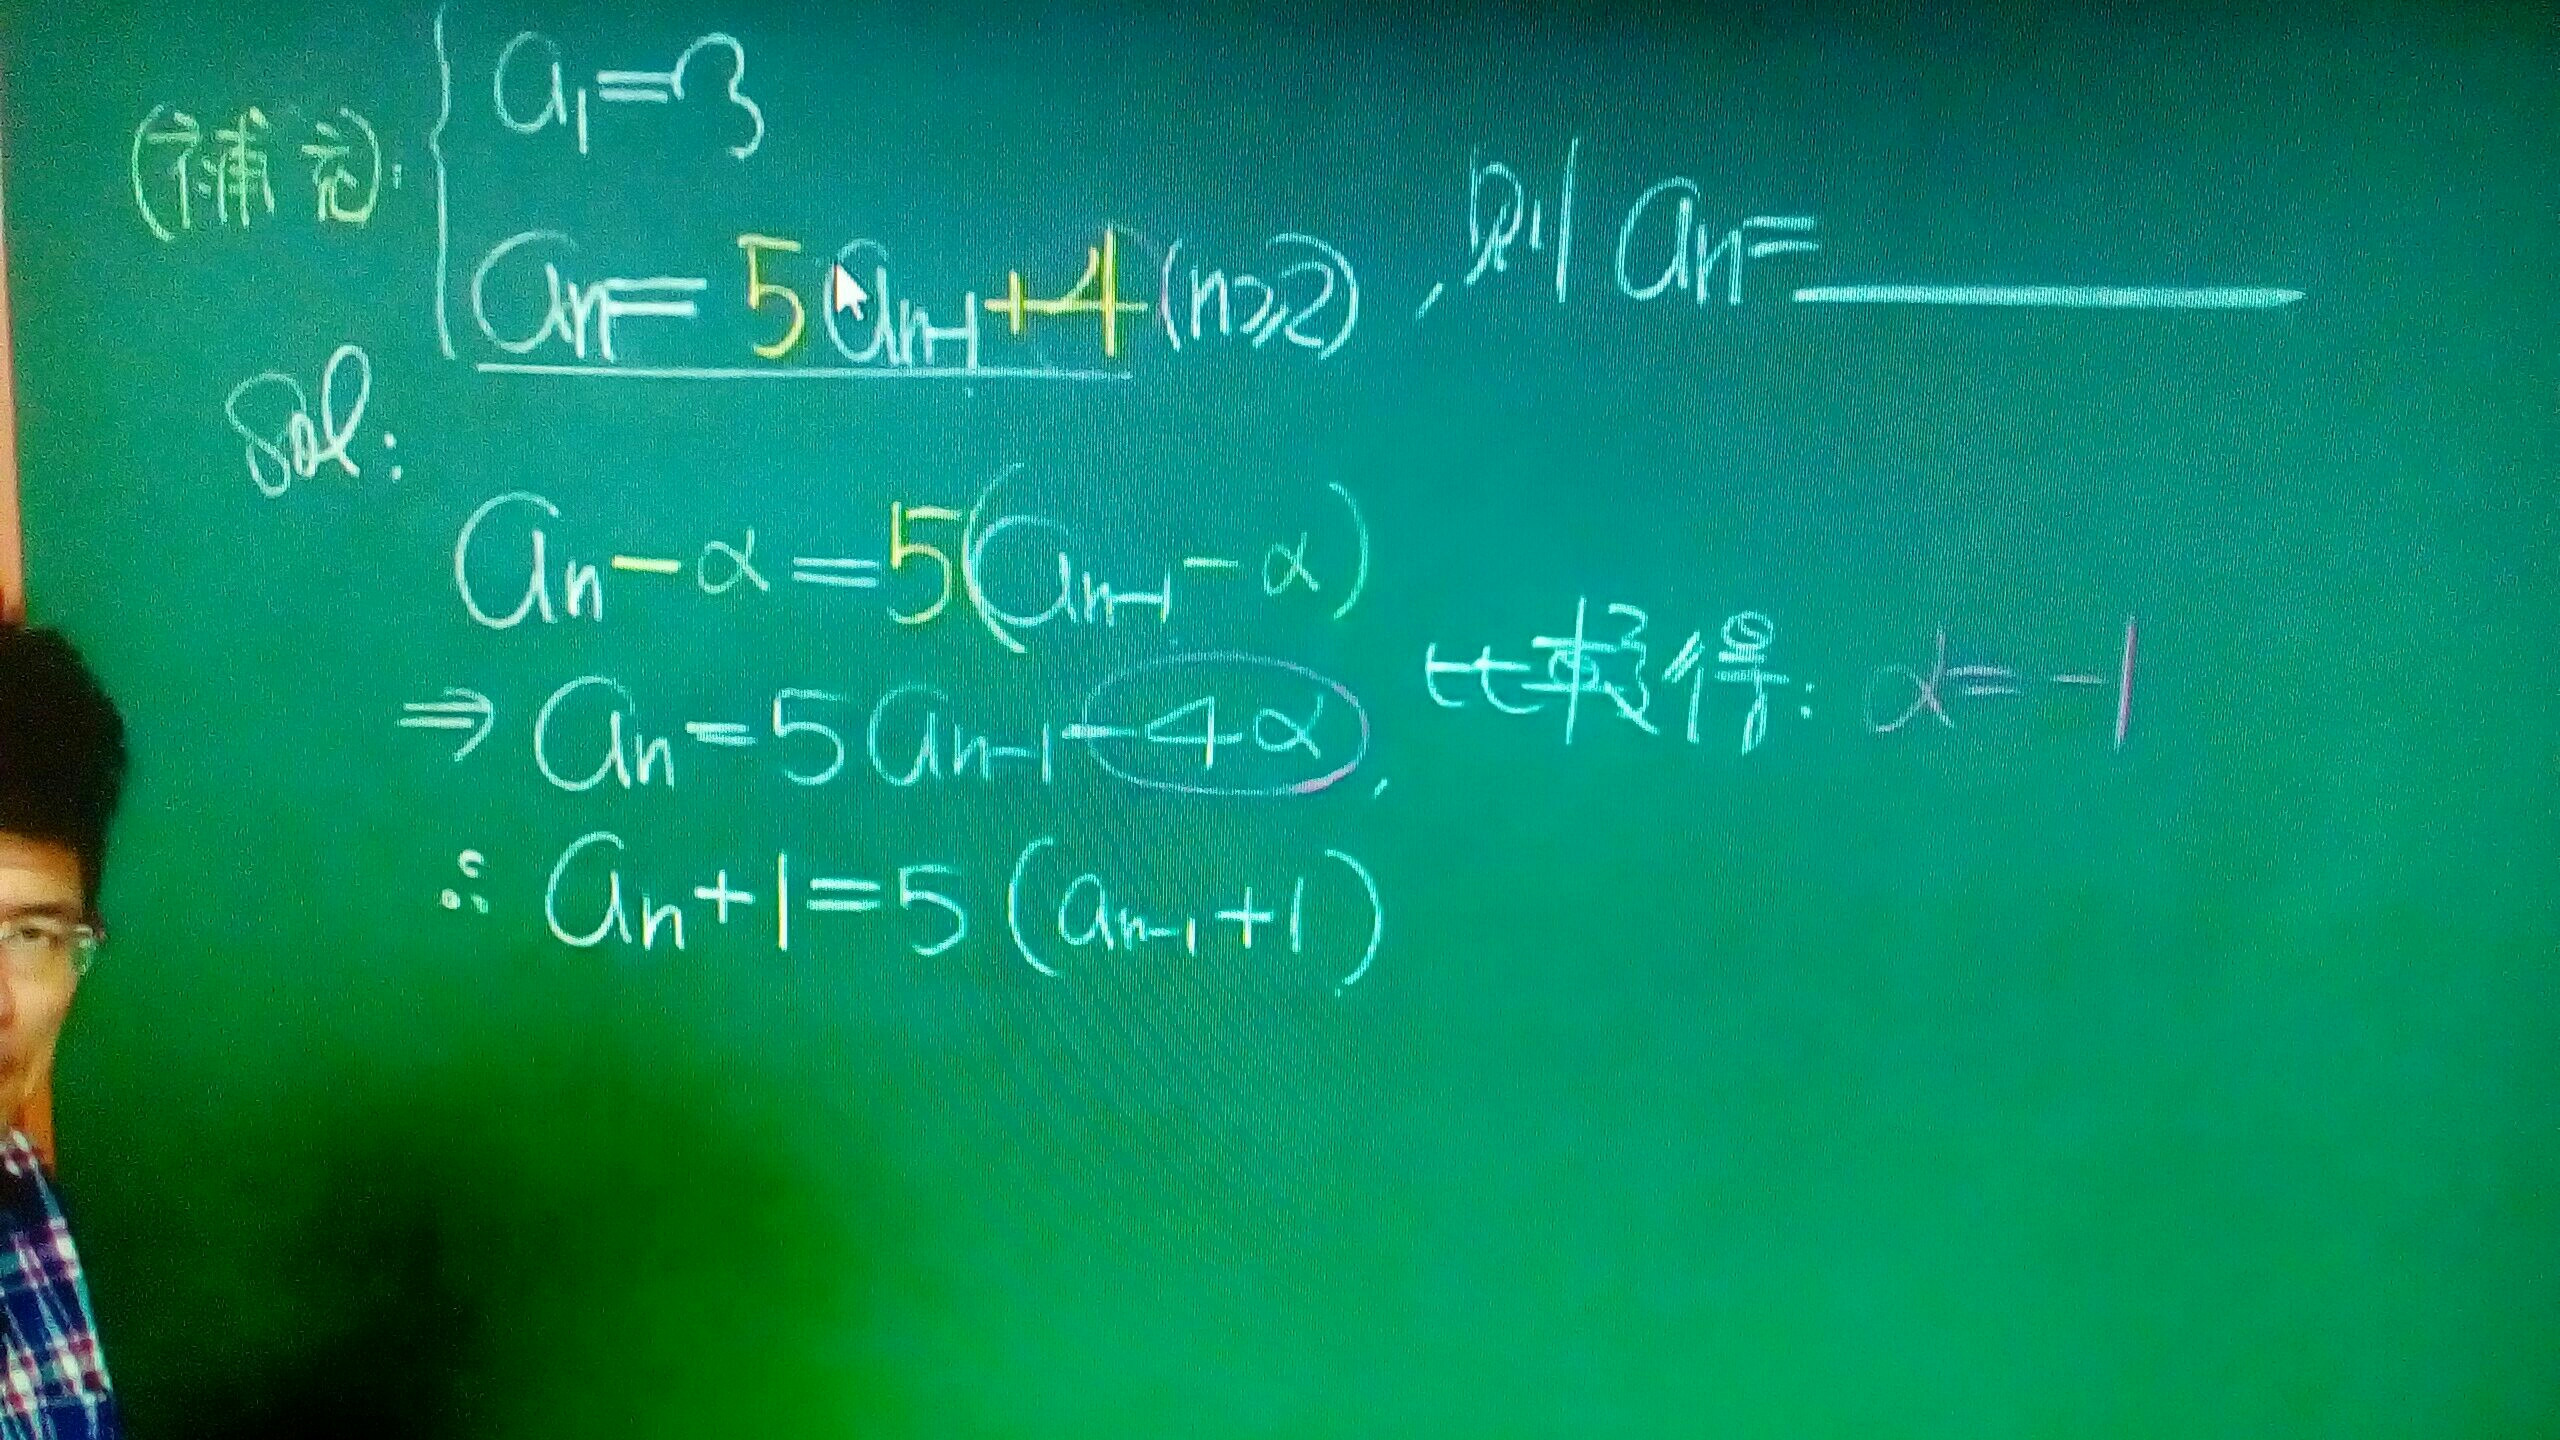 (補充):
a₁=3
aₙ=5aₙ₋₁+4 (n≥2), 則 aₙ=
Sol:
aₙ-α=5(aₙ₋₁-α)
⇒ aₙ=5aₙ₋₁-4α, 比較得: α=-1
∴ aₙ+1=5(aₙ₋₁+1)